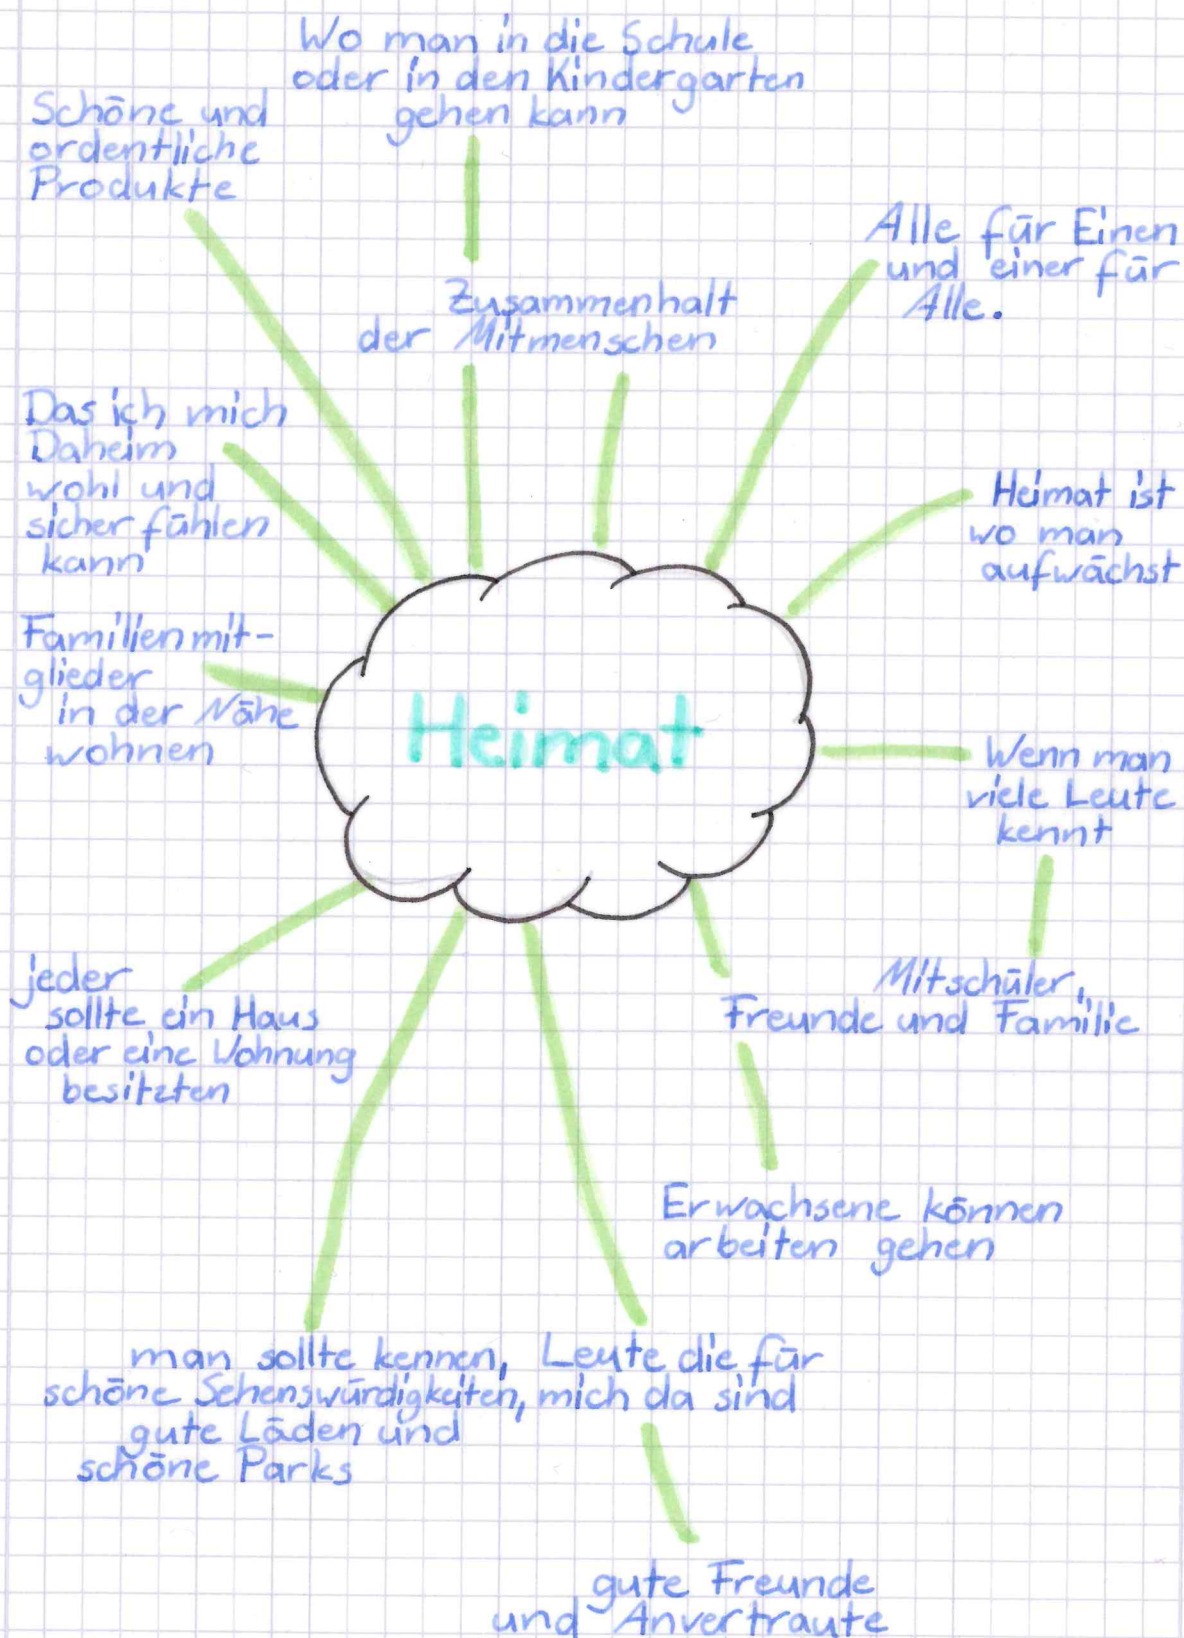 Wo man in die Schule
oder in den Kindergarten
gehen kann
Schöne und
ordentliche
Produkte
Alle für Einen
und einer für
Alle.
Zusammenhalt
der Mitmenschen
Das ich mich
Daheim
wohl und
sicher fühlen
kann
Heimat ist
wo man
aufwächst
Familienmit-
glieder
in der Nähe
wohnen
Heimat
Wenn man
viele Leute
kennt
Mitschüler,
Freunde und Familie
jeder
sollte ein Haus
oder eine Wohnung
besitzten
Erwachsene können
arbeiten gehen
man sollte kennen,
schöne Sehenswürdigkeiten,
gute Läden und
schöne Parks
Leute die für
mich da sind
gute Freunde
und Anvertraute